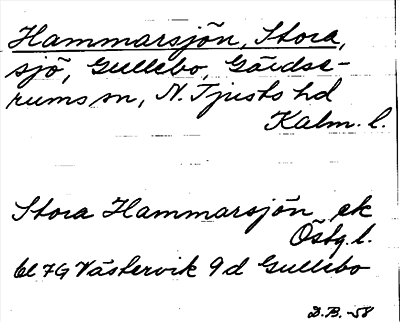 Hammarsjön, Stora,
sjö, Gullebo, Gärdse-
rums sn, N. Tjusts hd
Kalm. l.
Stora Hammarsjön ek
Östg. l.
bl 7G Västervik 9d Gullebo
D.B. -58